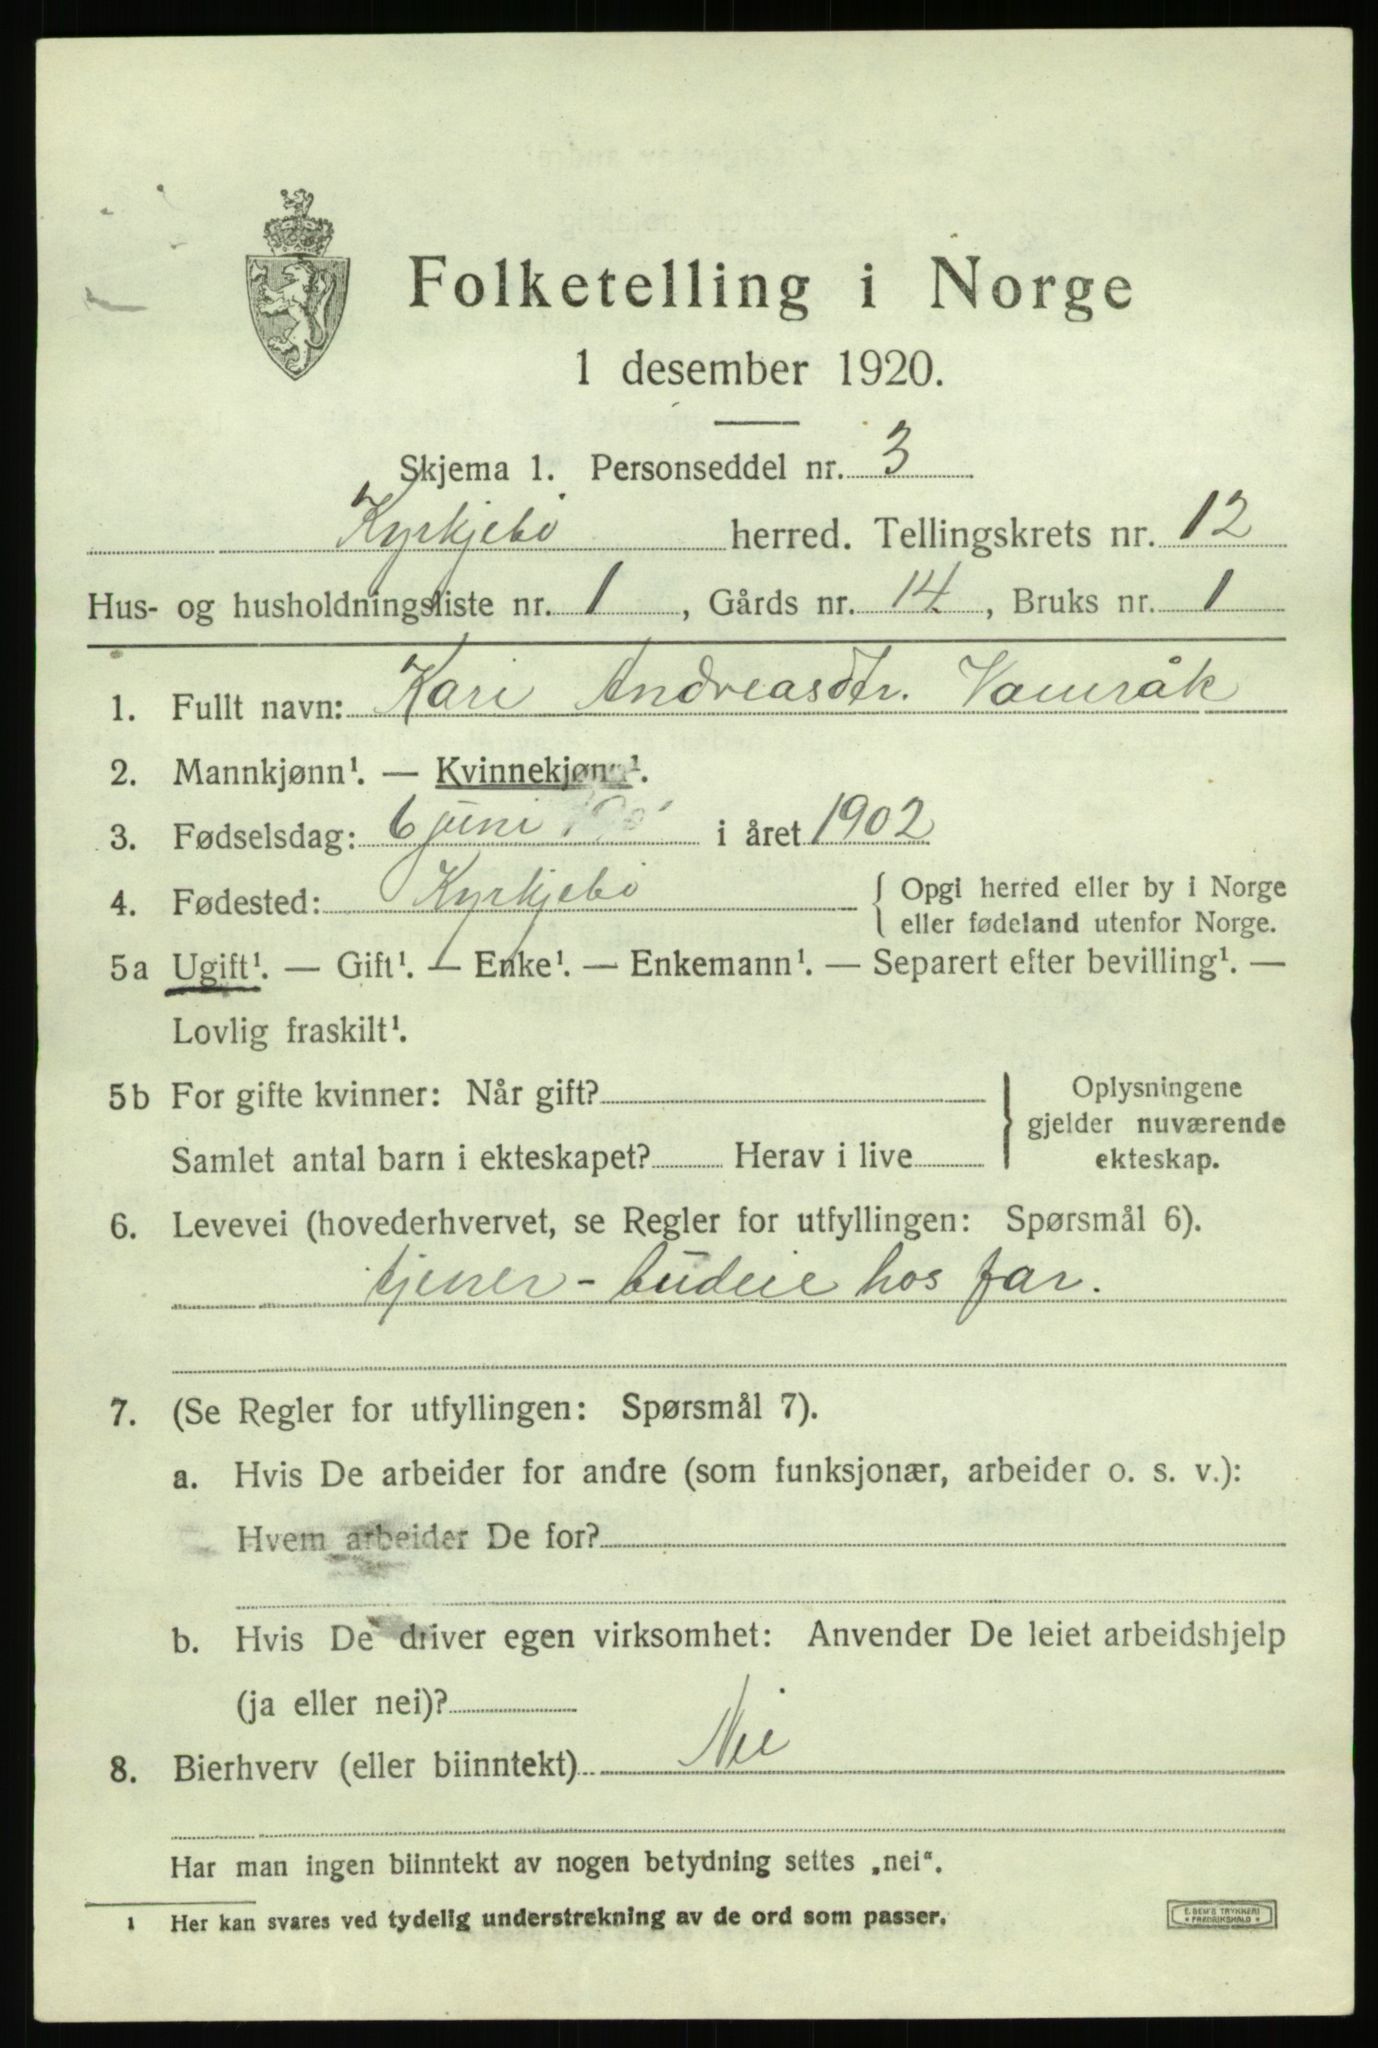 Folketelling i Norge
1 desember 1920.
Skjema 1. Personseddel nr. 3
Kyrkjebö herred. Tellingskrets nr. 12
Hus- og husholdningsliste nr. 1, Gårds nr. 14, Bruks nr. 1
1. Fullt navn: Kari Andreasdtr. Vamråk
2. Mannkjønn¹. — Kvinnekjønn¹.
3. Fødselsdag: 6 juni i året 1902
4. Fødested: Kyrkjebö { Opgi herred eller by i Norge
eller fødeland utenfor Norge.
5a Ugift¹. — Gift¹. — Enke¹. — Enkemann¹. — Separert efter bevilling¹. —
Lovlig fraskilt¹.
5b For gifte kvinner: Når gift? } Oplysningene
gjelder nuværende
Samlet antal barn i ekteskapet? Herav i live ekteskap.
6. Levevei (hovederhvervet, se Regler for utfyllingen: Spørsmål 6).
tjener - budeie hos far.
7. (Se Regler for utfyllingen: Spørsmål 7).
a. Hvis De arbeider for andre (som funksjonær, arbeider o. s. v.):
Hvem arbeider De for?
b. Hvis De driver egen virksomhet: Anvender De leiet arbeidshjelp
(ja eller nei)?
8. Bierhverv (eller biinntekt) Nei
Har man ingen biinntekt av nogen betydning settes „nei“.
¹ Her kan svares ved tydelig understrekning av de ord som passer.
E. SEM'S TRYKKERI
* FREDRIKSHALD *